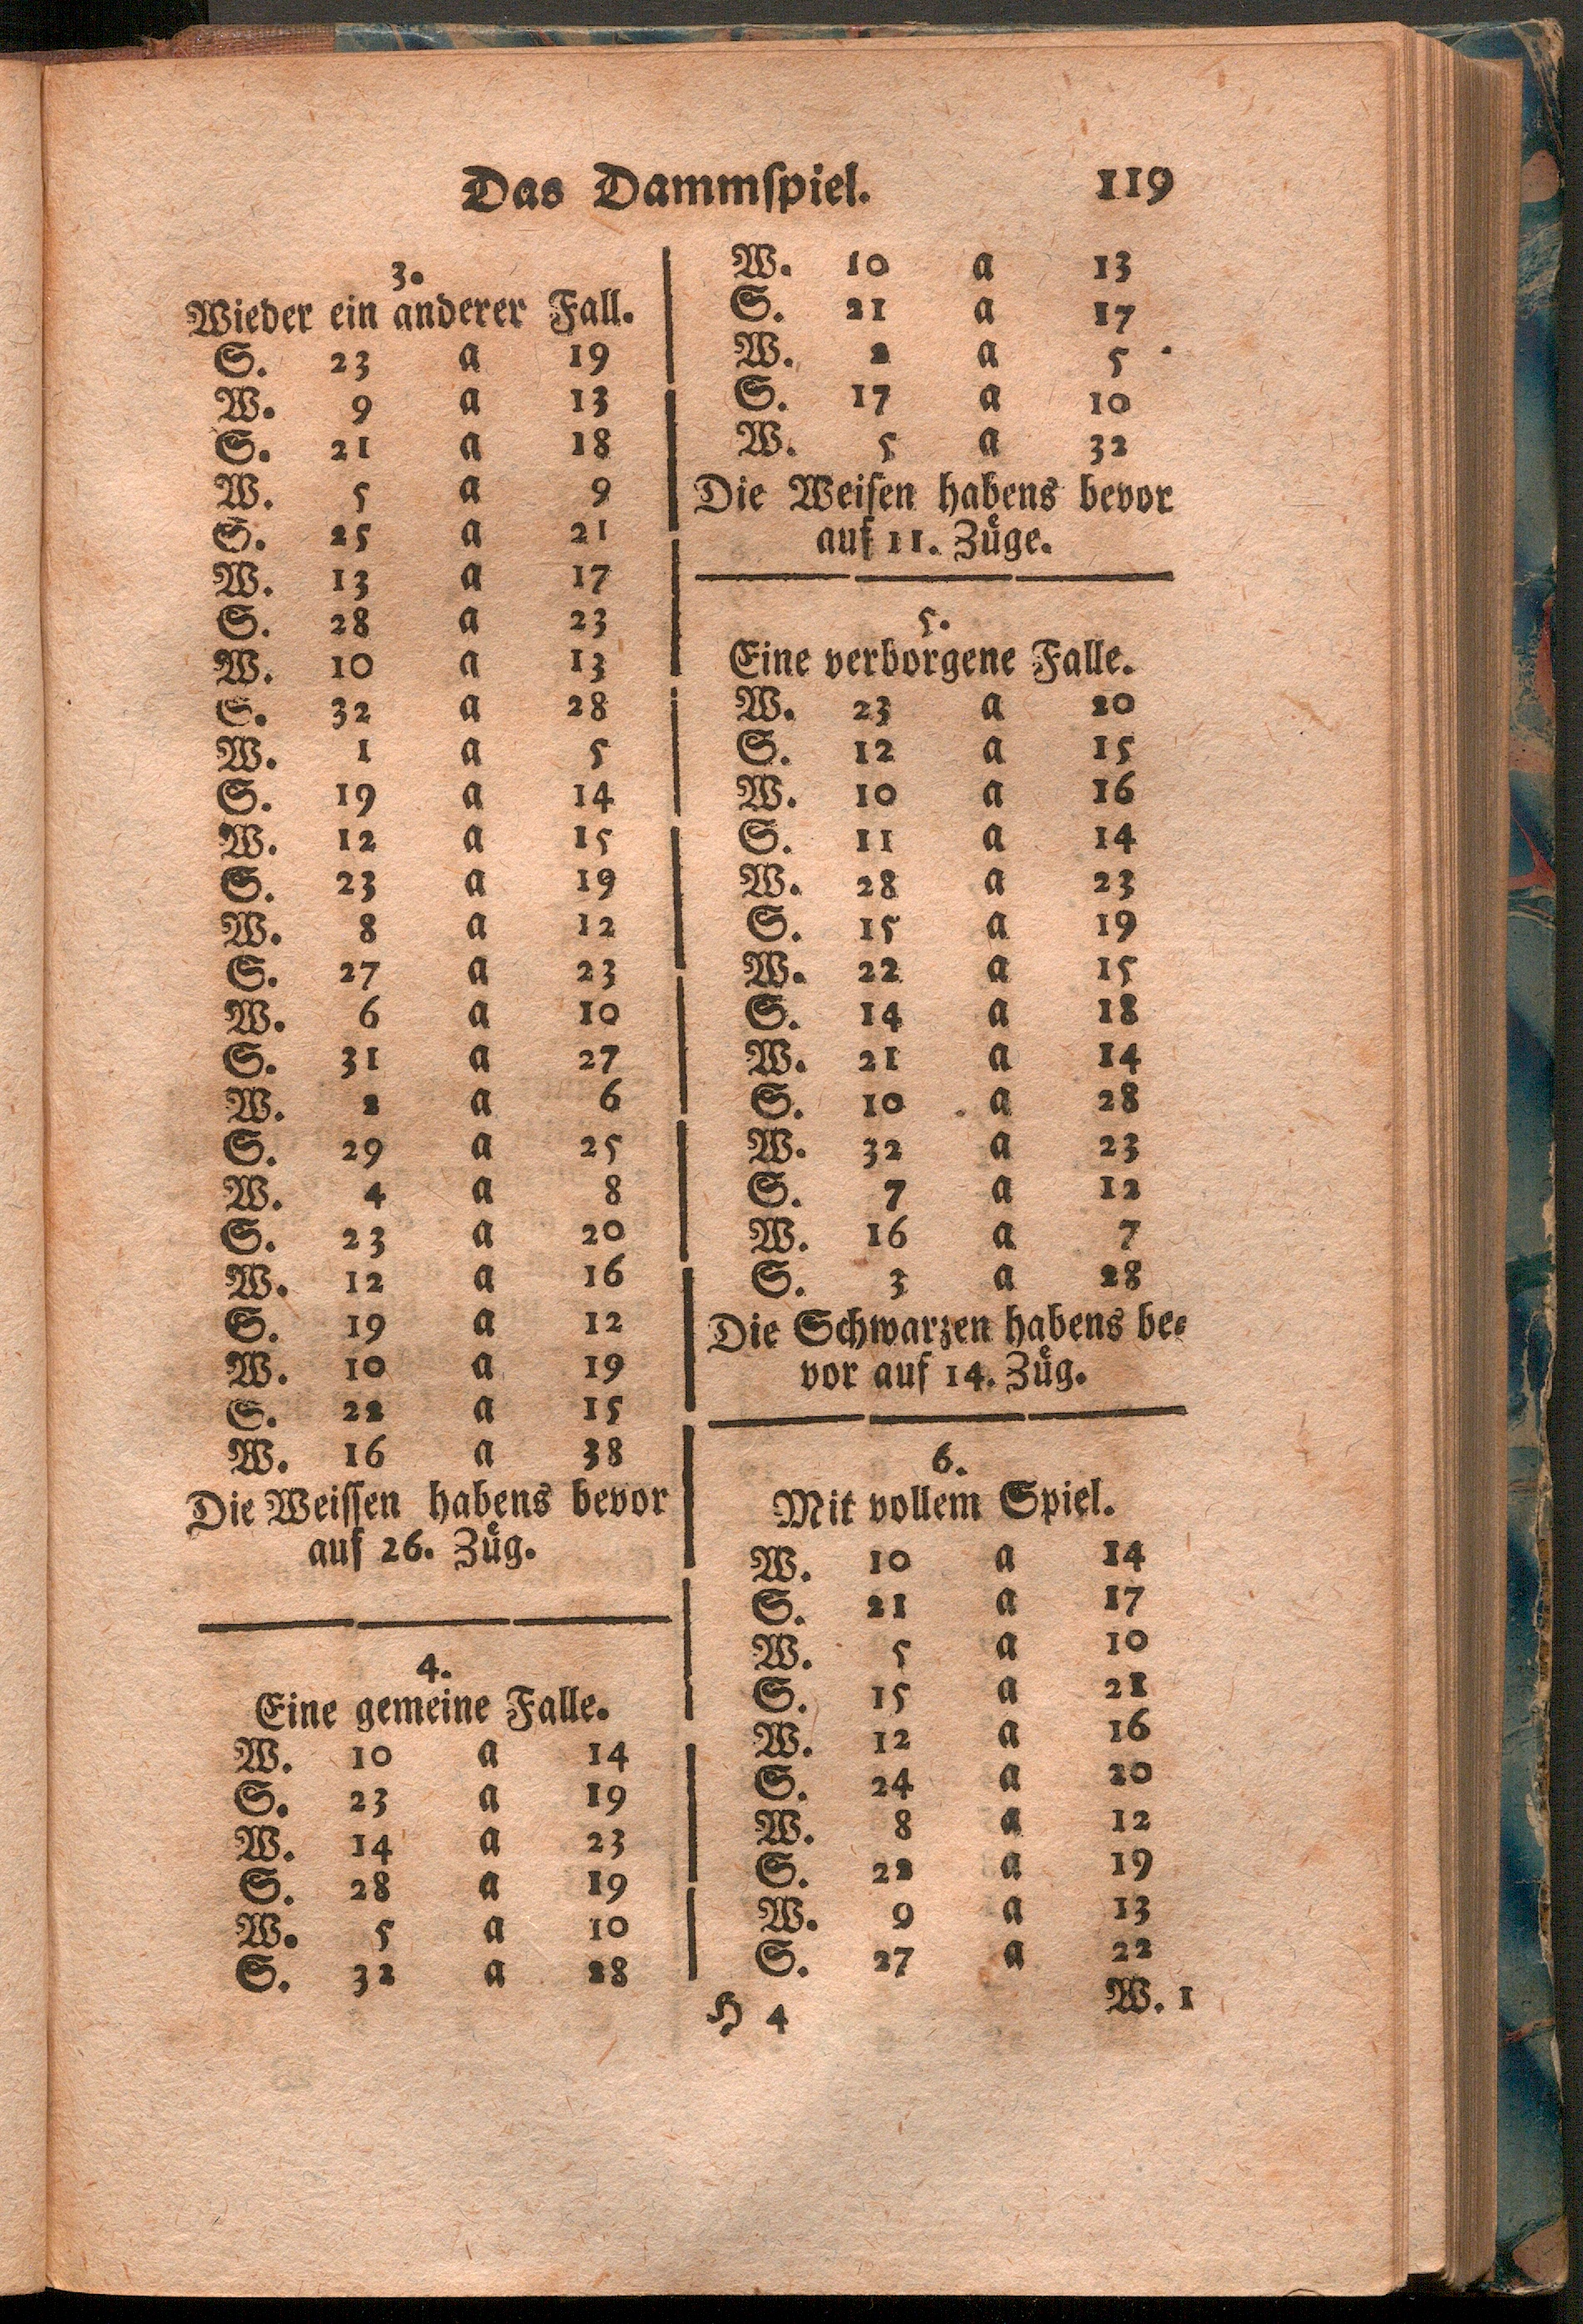 Das Dammſpiel. 119
3.
Wieder ein anderer Fall.
S. 23 a 19
W. 9 a 13
S. 21 a 18
W. 5 a 9
S. 25 a 21
W. 13 a 17
S. 28 a 23
W. 10 a 13
S. 32 a 28
W. 1 a 5
S. 19 a 14
W. 12 a 15
S. 23 a 19
W. 8 a 12
S. 27 a 23
W. 6 a 10
S. 31 a 27
W. 2 a 6
S. 29 a 25
W. 4 a 8
S. 23 a 20
W. 12 a 16
S. 19 a 12
W. 10 a 19
S. 22 a 15
W. 16 a 38
Die Weiſſen habens bevor
auf 26. Zuͤg.
4.
Eine gemeine Falle.
W. 10 a 14
S. 23 a 19
W. 14 a 23
S. 28 a 19
W. 5 a 10
S. 32 a 28
W. 10 a 13
S. 21 a 17
W. 2 a 5
S. 17 a 10
W. 5 a 32
Die Weiſen habens bevor
auf 11. Zuͤge.
5.
Eine verborgene Falle.
W. 23 a 20
S. 12 a 15
W. 10 a 16
S. 11 a 14
W. 28 a 23
S. 15 a 19
W. 22 a 15
S. 14 a 18
W. 21 a 14
S. 10 a 28
W. 32 a 23
S. 7 a 12
W. 16 a 7
S. 3 a 28
Die Schwarzen habens be⸗
vor auf 14. Zuͤg.
6.
Mit vollem Spiel.
W. 10 a 14
S. 21 a 17
W. 5 a 10
S. 15 a 21
W. 12 a 16
S. 24 a 20
W. 8 a 12
S. 22 a 19
W. 9 a 13
S. 27 a 22
H 4 W. 1